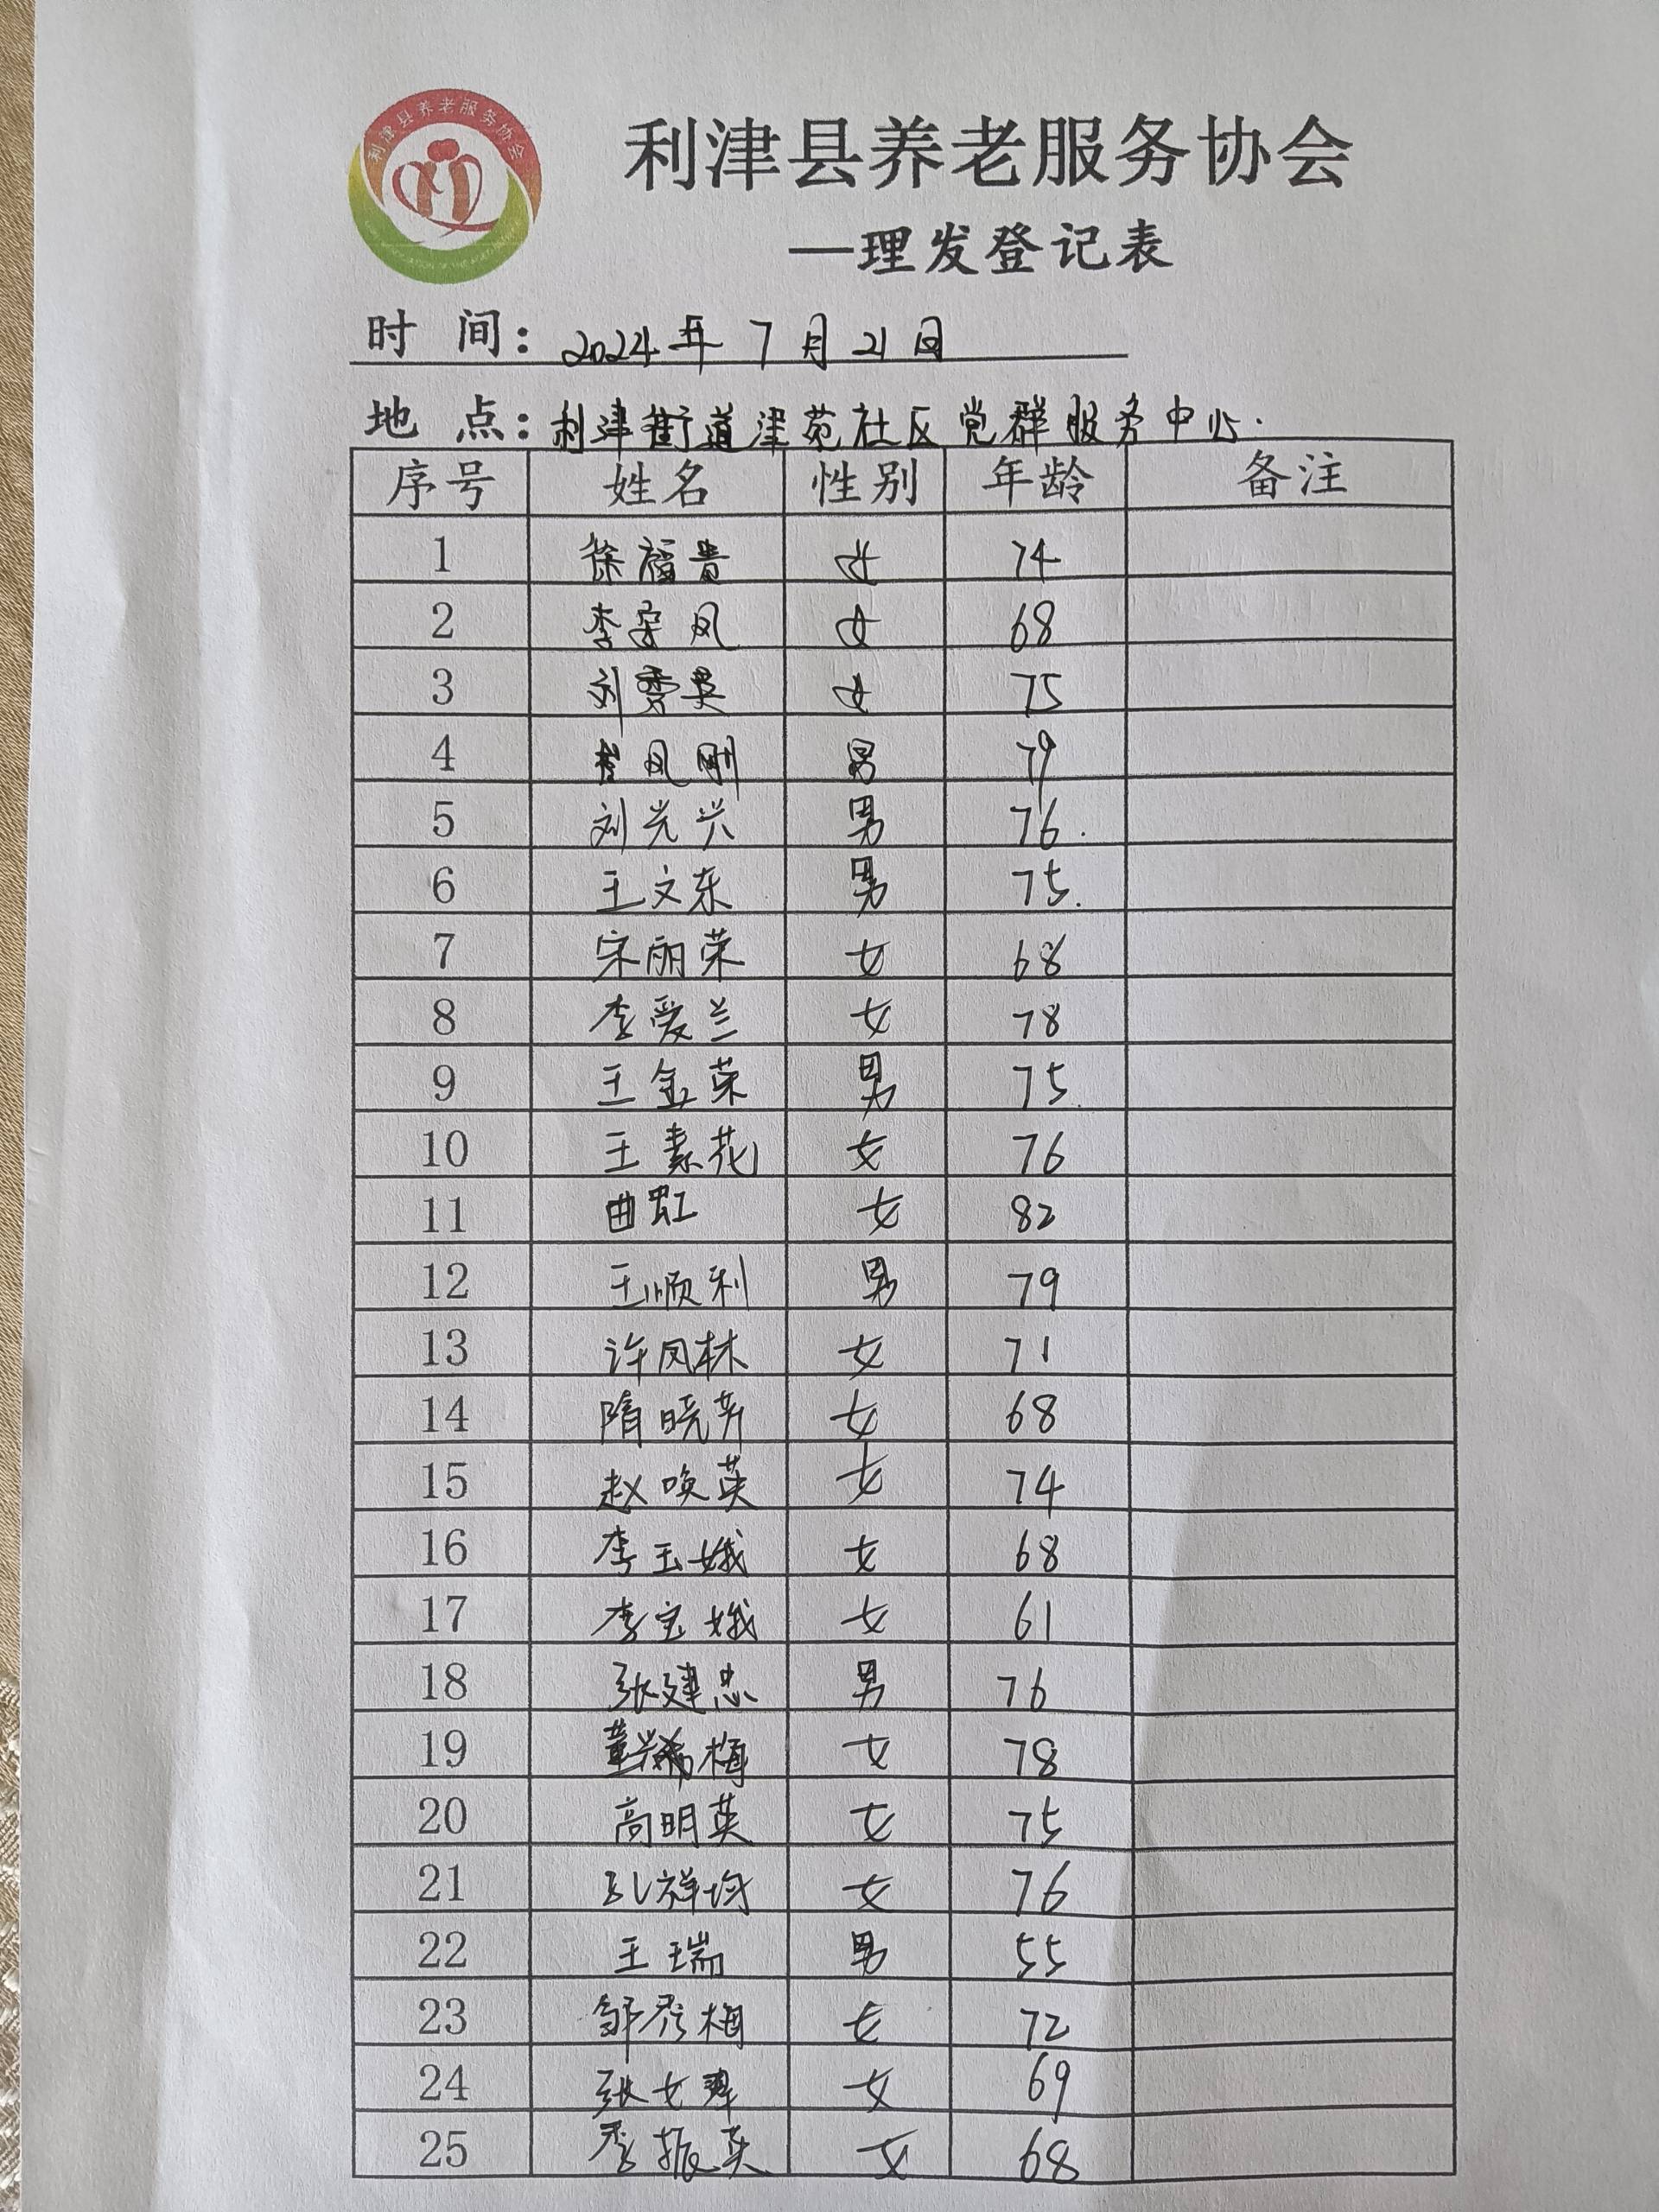 利津县养老服务协会
利津县养老服务协会
—理发登记表
时 间：2024年7月21日
地 点：利津街道津苑社区党群服务中心.
序号 姓名 性别 年龄 备注
1 徐福贵 女 74
2 李安凤 女 68
3 刘秀英 女 75
4 凤刚 男 79
5 刘光兴 男 76.
6 王文东 男 75.
7 宋丽荣 女 68
8 李爱兰 女 78
9 王金荣 男 75.
10 王素花 女 76
11 曲虹 女 82
12 王顺利 男 79
13 许凤林 女 71
14 隋晓芹 女 68
15 赵唤英 女 74
16 李玉娥 女 68
17 李宝娥 女 61
18 张建忠 男 76
19 董 梅 女 78
20 高明英 女 75
21 孔祥均 女 76
22 王瑞 男 55
23 邹秀梅 女 72
24 张女 女 69
25 李振英 女 68